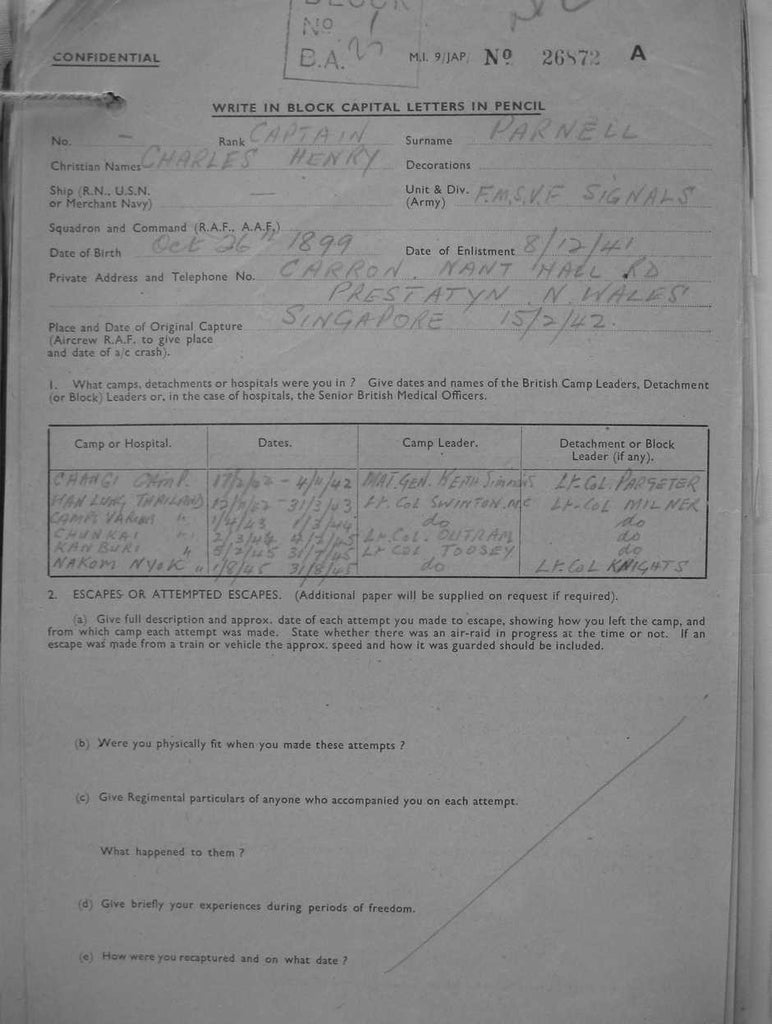 BLOCK
No 1
B.A.
CONFIDENTIAL
M.I. 9/JAP. No 26872 A
WRITE IN BLOCK CAPITAL LETTERS IN PENCIL
No. — Rank CAPTAIN Surname PARNELL
Christian Names CHARLES HENRY Decorations
Ship (R.N., U.S.N. — Unit & Div. F.M.S.V.F SIGNALS
or Merchant Navy) (Army)
Squadron and Command (R.A.F., A.A.F.)
Date of Birth Oct 26th 1899 Date of Enlistment 8/12/41
Private Address and Telephone No. CARRON. NANT HALL RD
PRESTATYN N. WALES
Place and Date of Original Capture SINGAPORE 15/2/42.
(Aircrew R.A.F. to give place
and date of a/c crash).
1. What camps, detachments or hospitals were you in ? Give dates and names of the British Camp Leaders, Detachment
(or Block) Leaders or, in the case of hospitals, the Senior British Medical Officers.
Camp or Hospital. Dates. Camp Leader. Detachment or Block
Leader (if any).
CHANGI CAMP. 17/2/42 - 4/11/42 MAJ. GEN. KEITH SIMMONS Lt. Col. PARGETER
THAILAND 12/11/42 - 31/3/43 Lt. Col SWINTON. MC Lt-Col MILNER
1/4/43 1/3/44 do do
CHUNKAI " 2/3/44 4/2/45 Lt. Col. OUTRAM do
KAN BURI " 5/2/45 31/7/45 Lt Col TOOSEY do
NAKOM NYOK " 1/8/45 31/8/45 do Lt. Col KNIGHTS
2. ESCAPES OR ATTEMPTED ESCAPES. (Additional paper will be supplied on request if required).
(a) Give full description and approx. date of each attempt you made to escape, showing how you left the camp, and
from which camp each attempt was made. State whether there was an air-raid in progress at the time or not. If an
escape was made from a train or vehicle the approx. speed and how it was guarded should be included.
(b) Were you physically fit when you made these attempts ?
(c) Give Regimental particulars of anyone who accompanied you on each attempt.
What happened to them ?
(d) Give briefly your experiences during periods of freedom.
(e) How were you recaptured and on what date ?